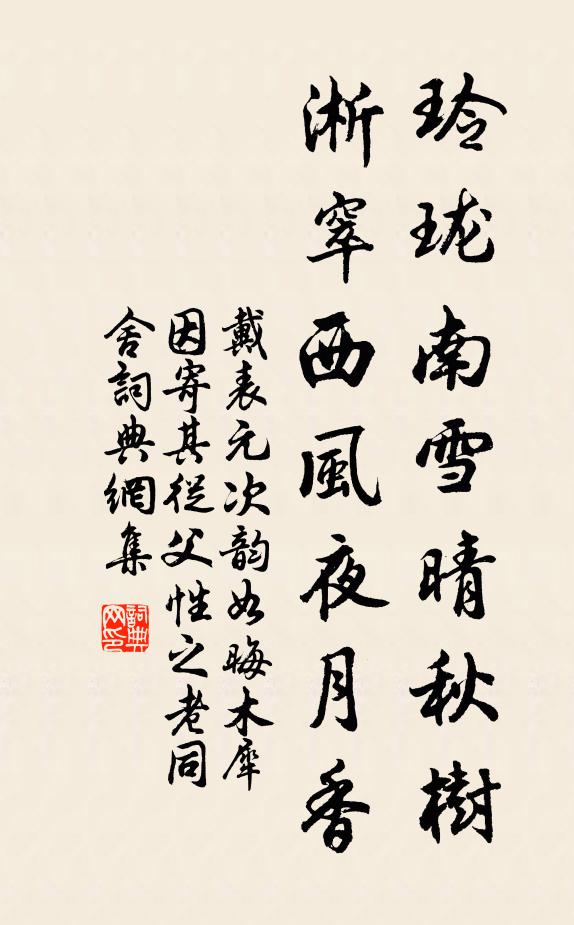 玲瓏南雪晴秋樹
淅窣西風夜月香
戴表元次韵如晦木犀
因寄其從父性之老同
舍詞典網集
詞典网印